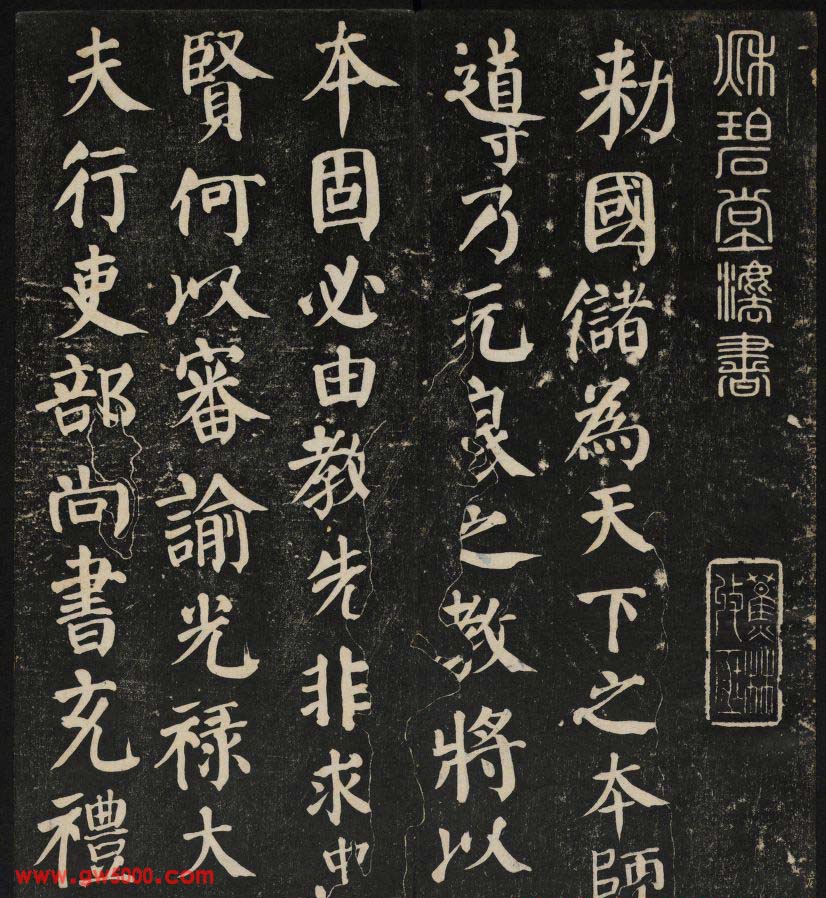 秌碧堂灋書
蕉林
勅國儲為天下之本師
導乃元良之教將以
本固必由教先非求忠
賢何以審諭光祿大
夫行吏部尚書充禮
www.gw5000.com